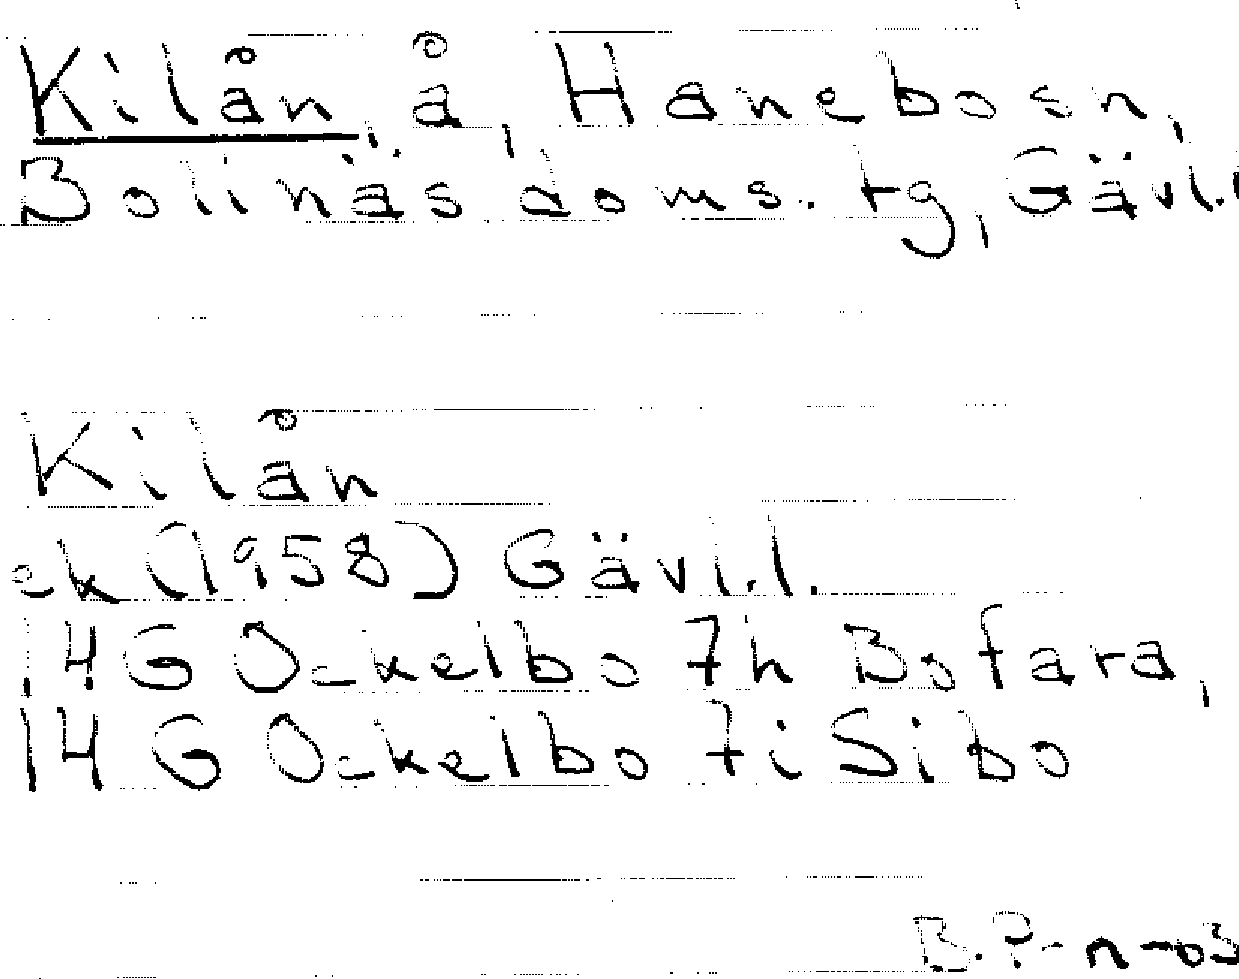 Kilån, å, Hanebo sn,
Bollnäs doms. tg, Gävl.l
Kilån
ek (1958) Gävl.l.
14G Ockelbo 7h Bofara,
14G Ockelbo 7i Sibo